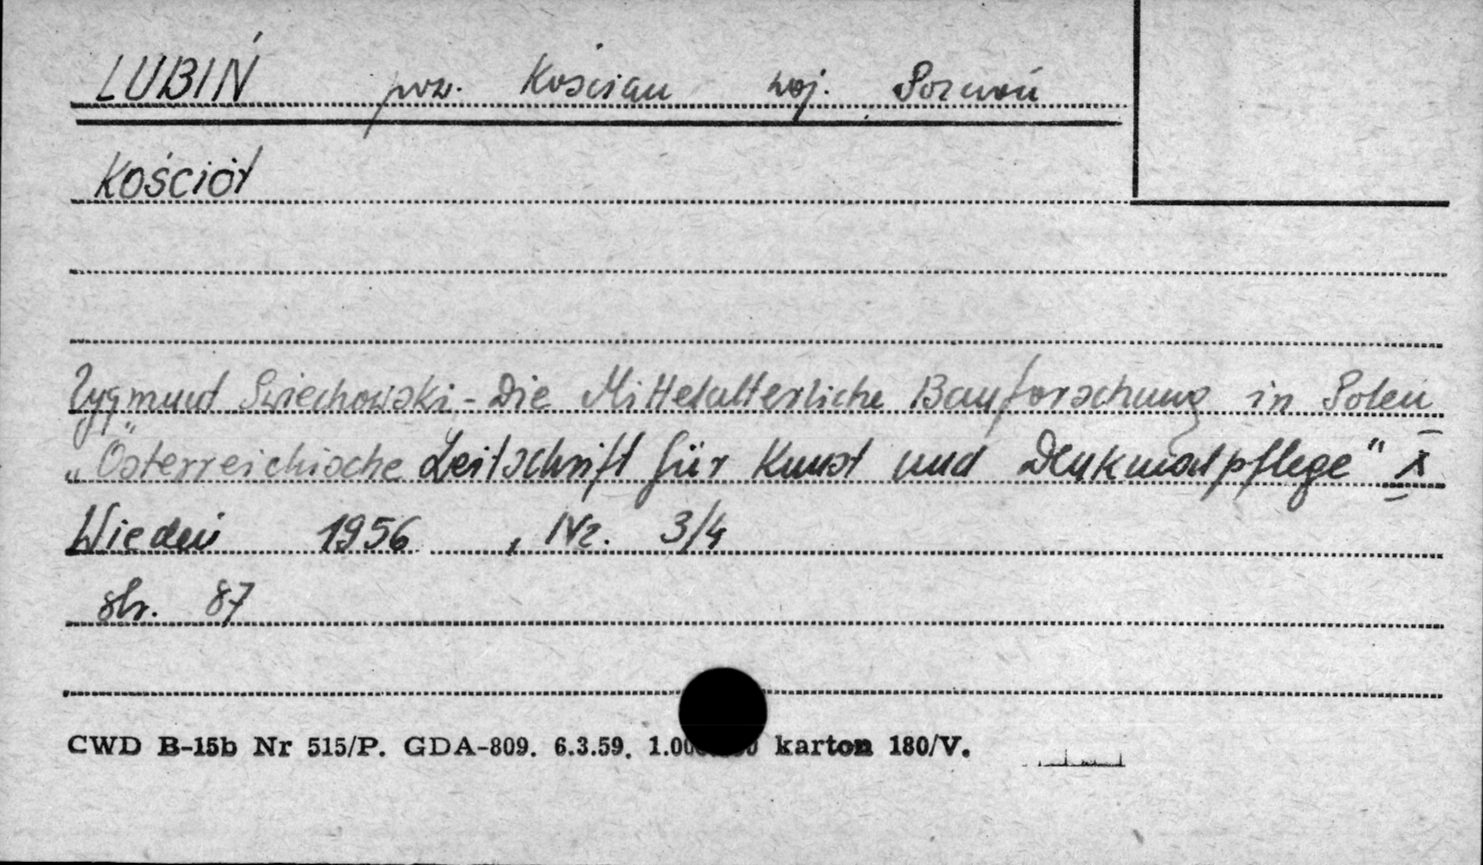 LUBIŃ pow. Kościan woj. Poznań
Kościół
Zygmunt Swiechowski - Die Mittelalterliche Bauforschung in Polen
„Österreichische Zeitschrift für Kunst und Denkmalpflege" X
Wiedeń 1956 , Nr. 3/4
str. 87
CWD B-15b Nr 515/P. GDA-809. 6.3.59. karton 180/V.